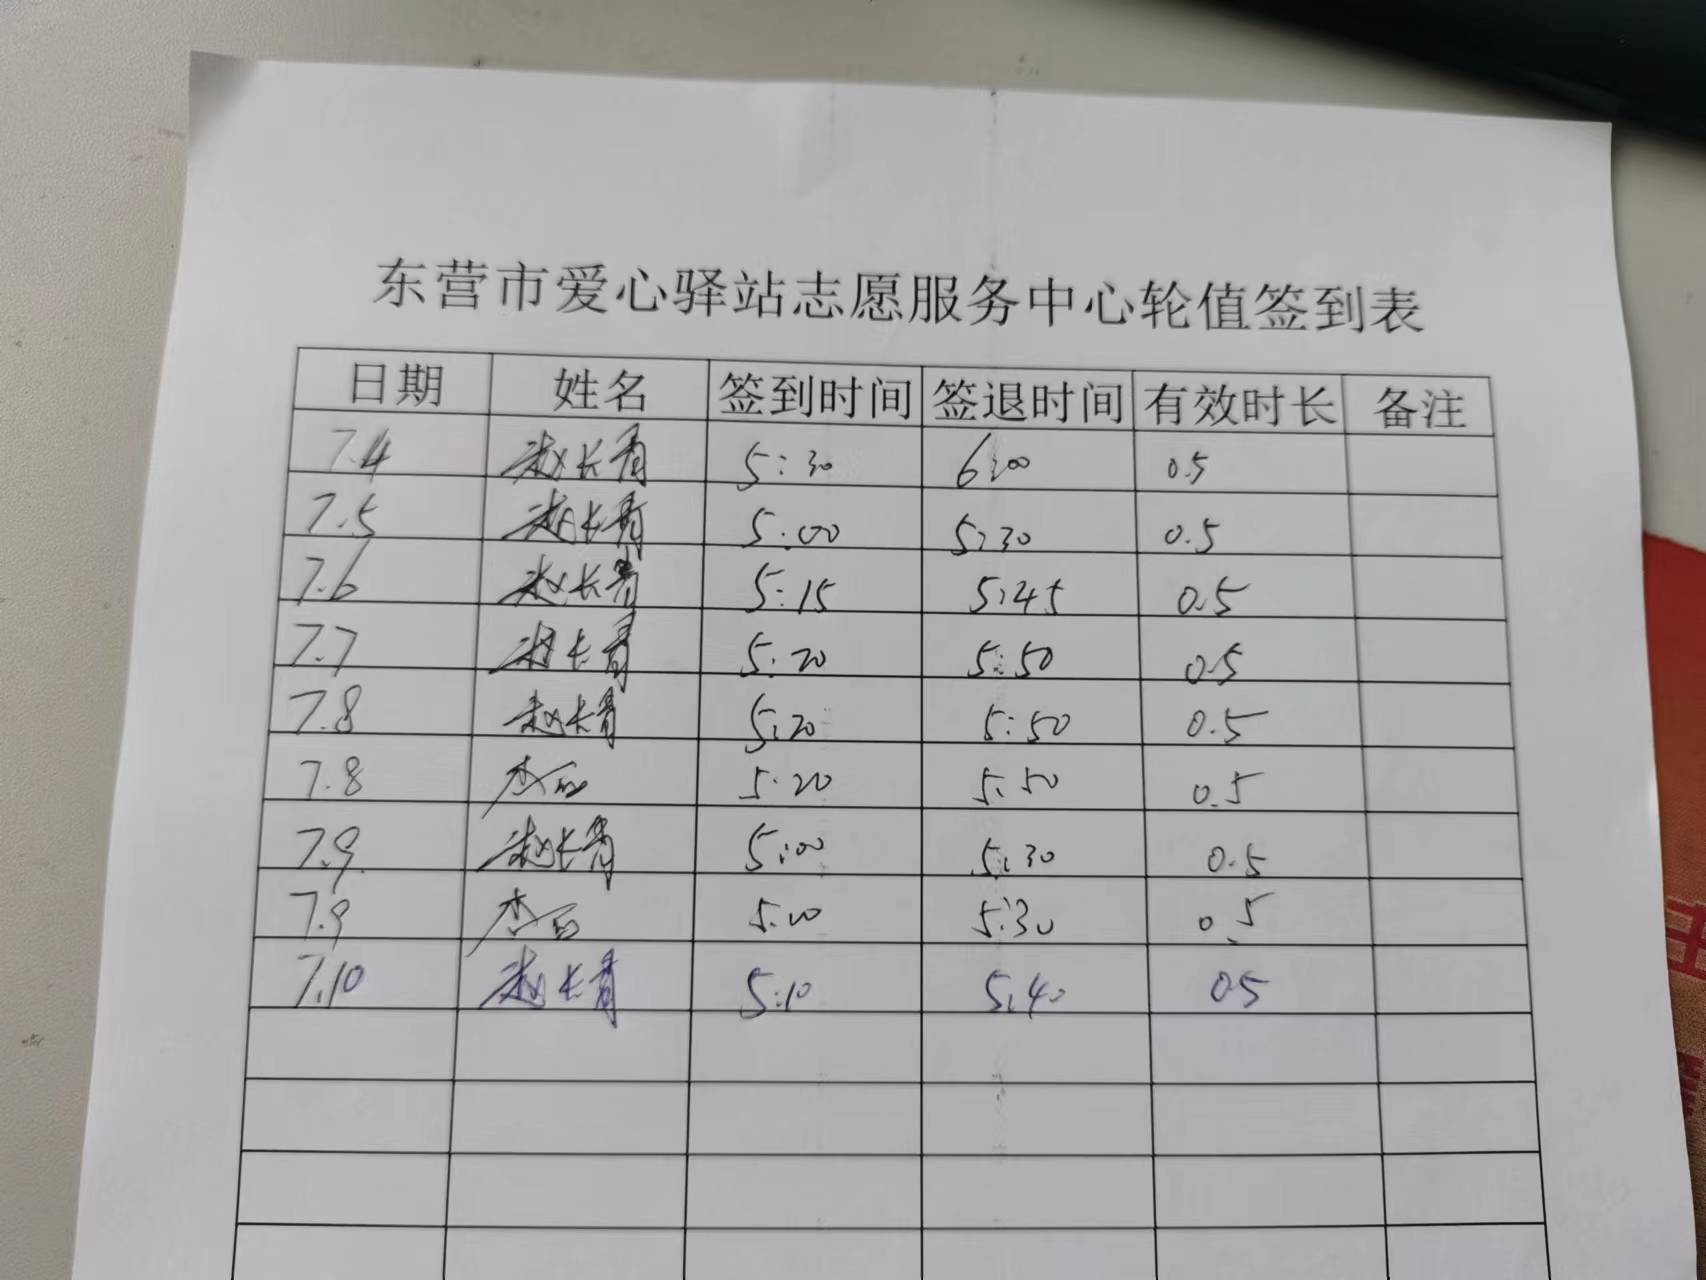 东营市爱心驿站志愿服务中心轮值签到表
日期 姓名 签到时间 签退时间 有效时长 备注
7.4 赵长青 5:30 6:00 0.5
7.5 赵长青 5:00 5:30 0.5
7.6 赵长青 5:15 5:45 0.5
7.7 赵长青 5:20 5:50 0.5
7.8 赵长青 5:20 5:50 0.5
7.8 5:20 5:50 0.5
7.9 赵长青 5:00 5:30 0.5
7.9 5:00 5:30 0.5
7.10 赵长青 5:10 5:40 0.5